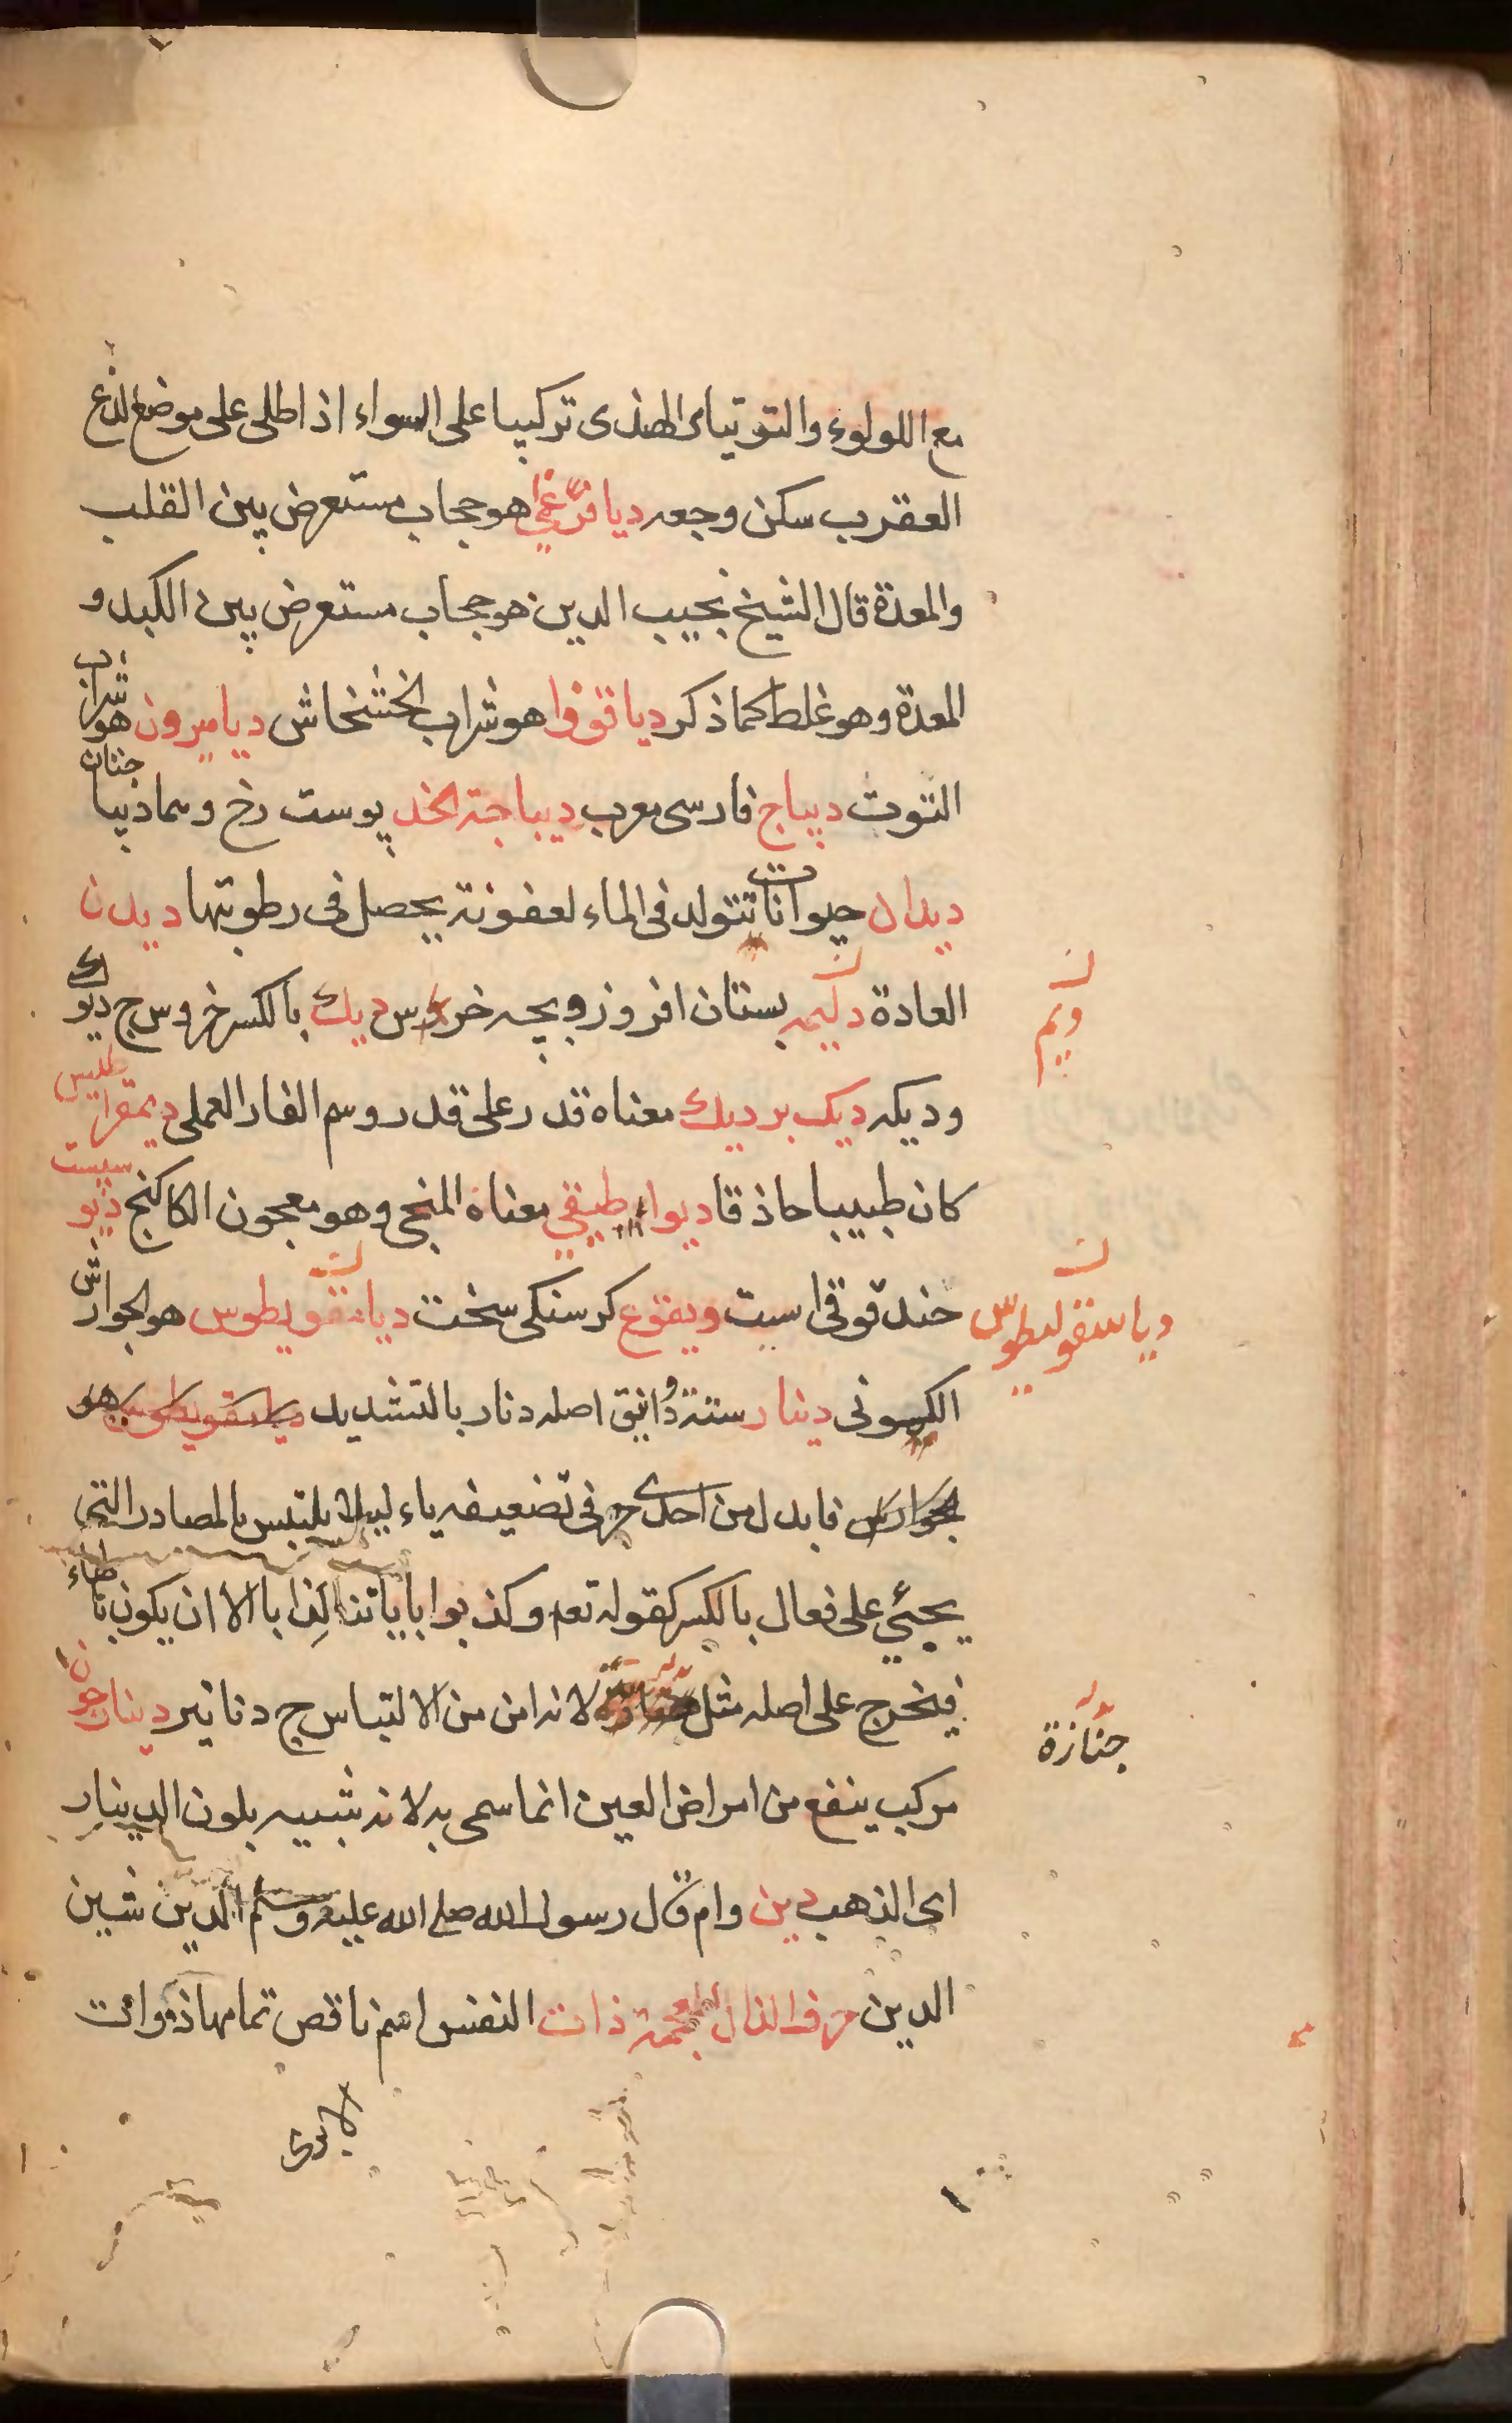 مع اللولوء والتوتياى الهندى تركيبا على السواء اذا طلى على موضع لذع
العقرب سكن وجعه ديافرغما هو حجاب مستعرض بين القلب
والمعدة قال الشيخ نجيب الدين هو حجاب مستعرض بين الكبد و
المعدة وهو غلط كما ذكر دياقوذا هو شراب الخشخاش ديامرون هو شراب
التوت ديباج فارسى معرب ديباجة الخد پوست رخ وهما ديباجتان
ديدان حيوانات تتولد فى الماء لعفونة يحصل فى رطوبتها ديدن
العادة بستان افروز وبچه خروس ديك بالكسر خروس ج ديوك
وديكه ديك برديك معناه قدر على قدر وسم الفار العملى ديمقراطيس
كان طبيبا حاذقا معناه المنجى وهو معجون الكاكنج ديو سپست
حندقوقى است كرسنكى سخت هو الجوارش
دياسنقوليطوس
الكمونى دينار ستة دوانيق اصله دنار بالتشديد
فابدل من احدى حرفى تضعيفه ياء ليلا يلتبس بالمصادر التى
يجئى على فعال بالكسر كقوله تعم وكذبوا باياتنا كذابا الا ان يكون بالهاء
فيخرج على اصله مثل لانه امن من الالتباس ج دنانير دينارجون
جنازة
مركب ينفع من امراض العين انما سمى به لانه شبيه بلون الدينار
اى الذهب دين وام قال رسول الله صلى الله عليه وسلم الدين شين
الدين حرف الذال المعجمة ذات النفس اسم ناقص تمامها ذوات